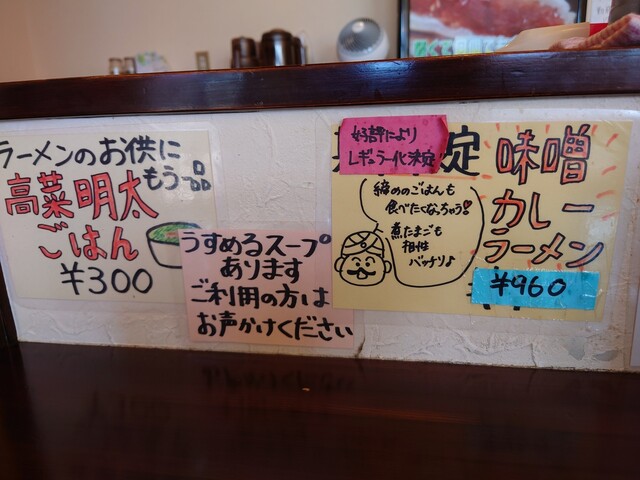 ラーメンのお供に
もう一品
高菜明太
ごはん
¥300
うすめるスープ
あります
ご利用の方は
お声かけください
好評により
レギュラー化決定
定
味噌
カレー
ラーメン
¥960
締めのごはんも
食べたくなっちゃう!
煮たまごも
相性
バッチリ♪